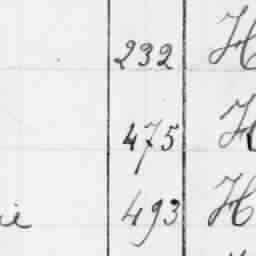 232 H
475 H
ie 493 H